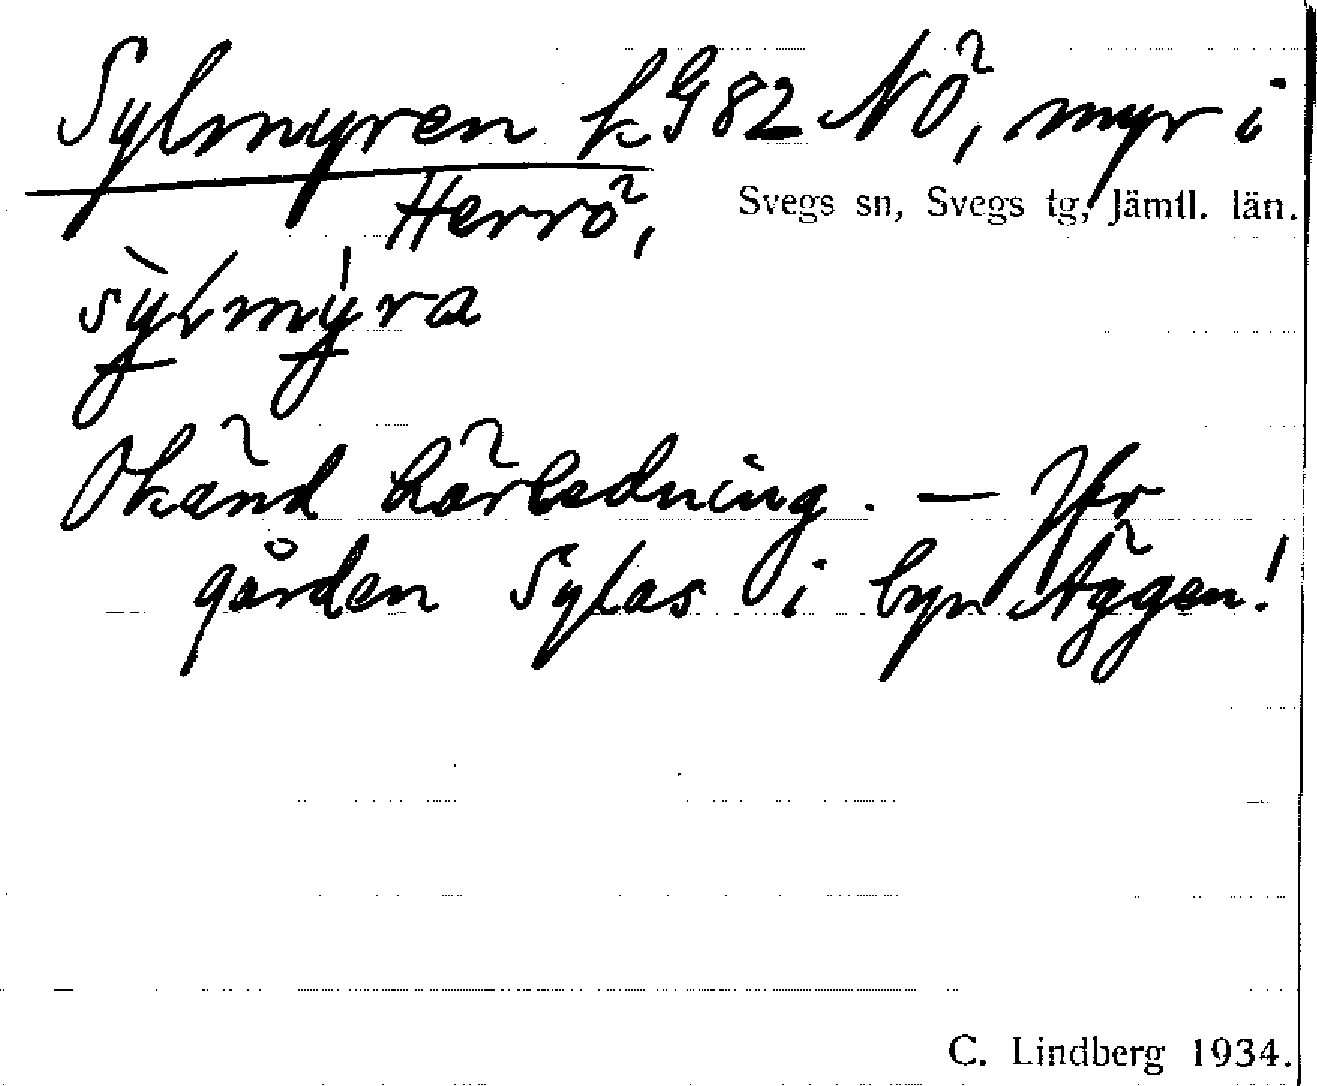 Sylmyren k G 82 NÖ, myr i
Herrö, Svegs sn, Svegs tg, Jämtl. län.
sỳlmýra
Okänd härledning. — Jfr
gården Sylas i byn Äggen!
C. Lindberg 1934.